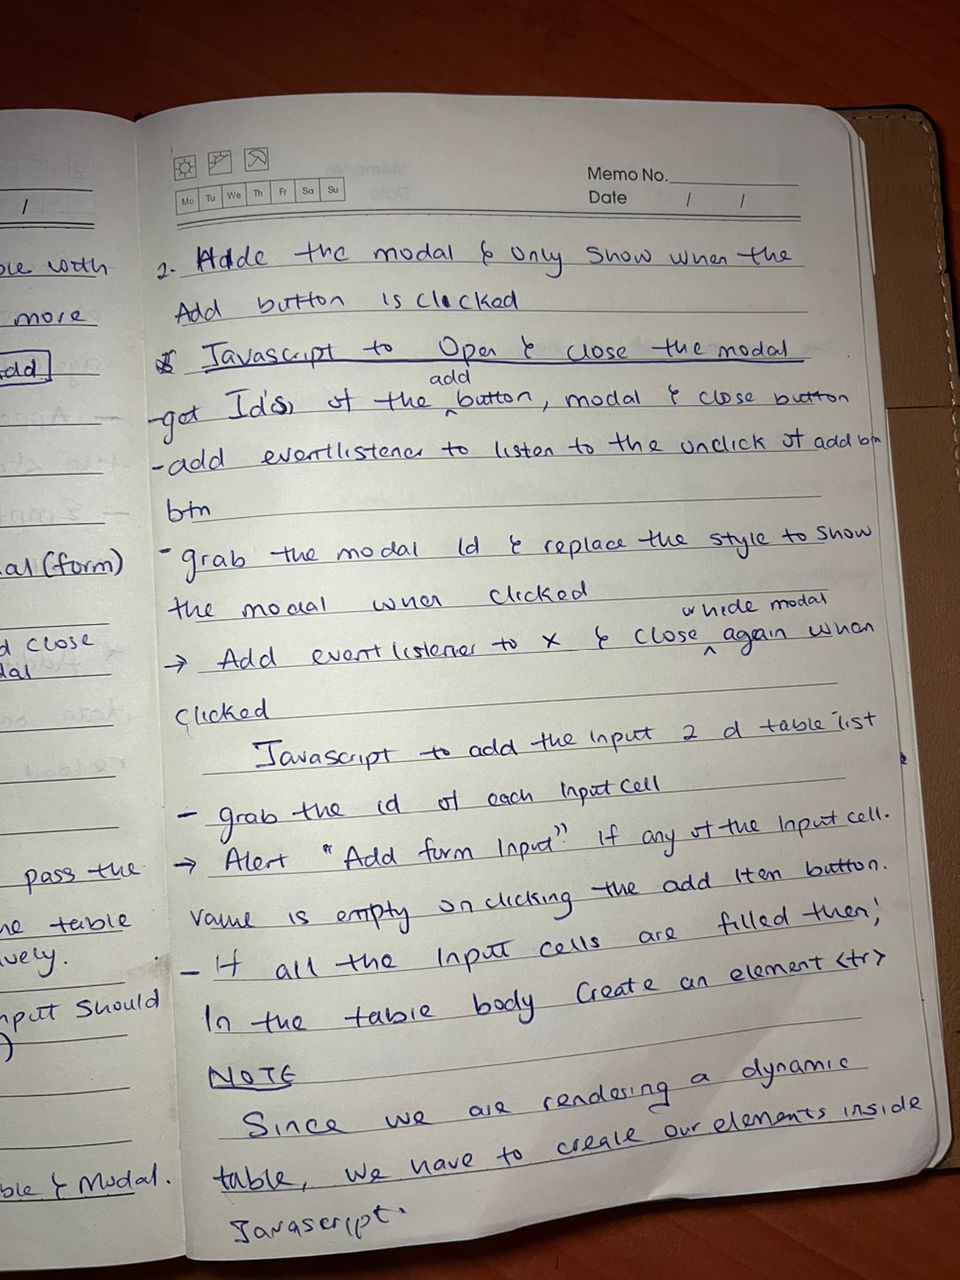 /
ble with
more
add
al (form)
d close
dal
pass the
he table
ively.
nput should
)
ble & Modal.
Mo Tu We Th Fr Sa Su
Memo No.
Date / /
2. Hide the modal & only show when the
Add button is clicked
Javascript to Open & close the modal
add
-get Id's, of the ^ button, modal & close button
-add eventlistener to listen to the onclick of add btn
btn
- grab the modal Id & replace the style to show
the modal when clicked
or hide modal
→ Add eventlistener to x & close ^ again when
clicked
Javascript to add the input 2 d table list
- grab the id of each Input Cell
→ Alert "Add form Input" if any of the Input cell.
value is empty on clicking the add Item button.
- If all the Input cells are filled then;
In the table body Create an element <tr>
NOTE
Since we are rendering a dynamic
table, we have to create our elements inside
Javascript.